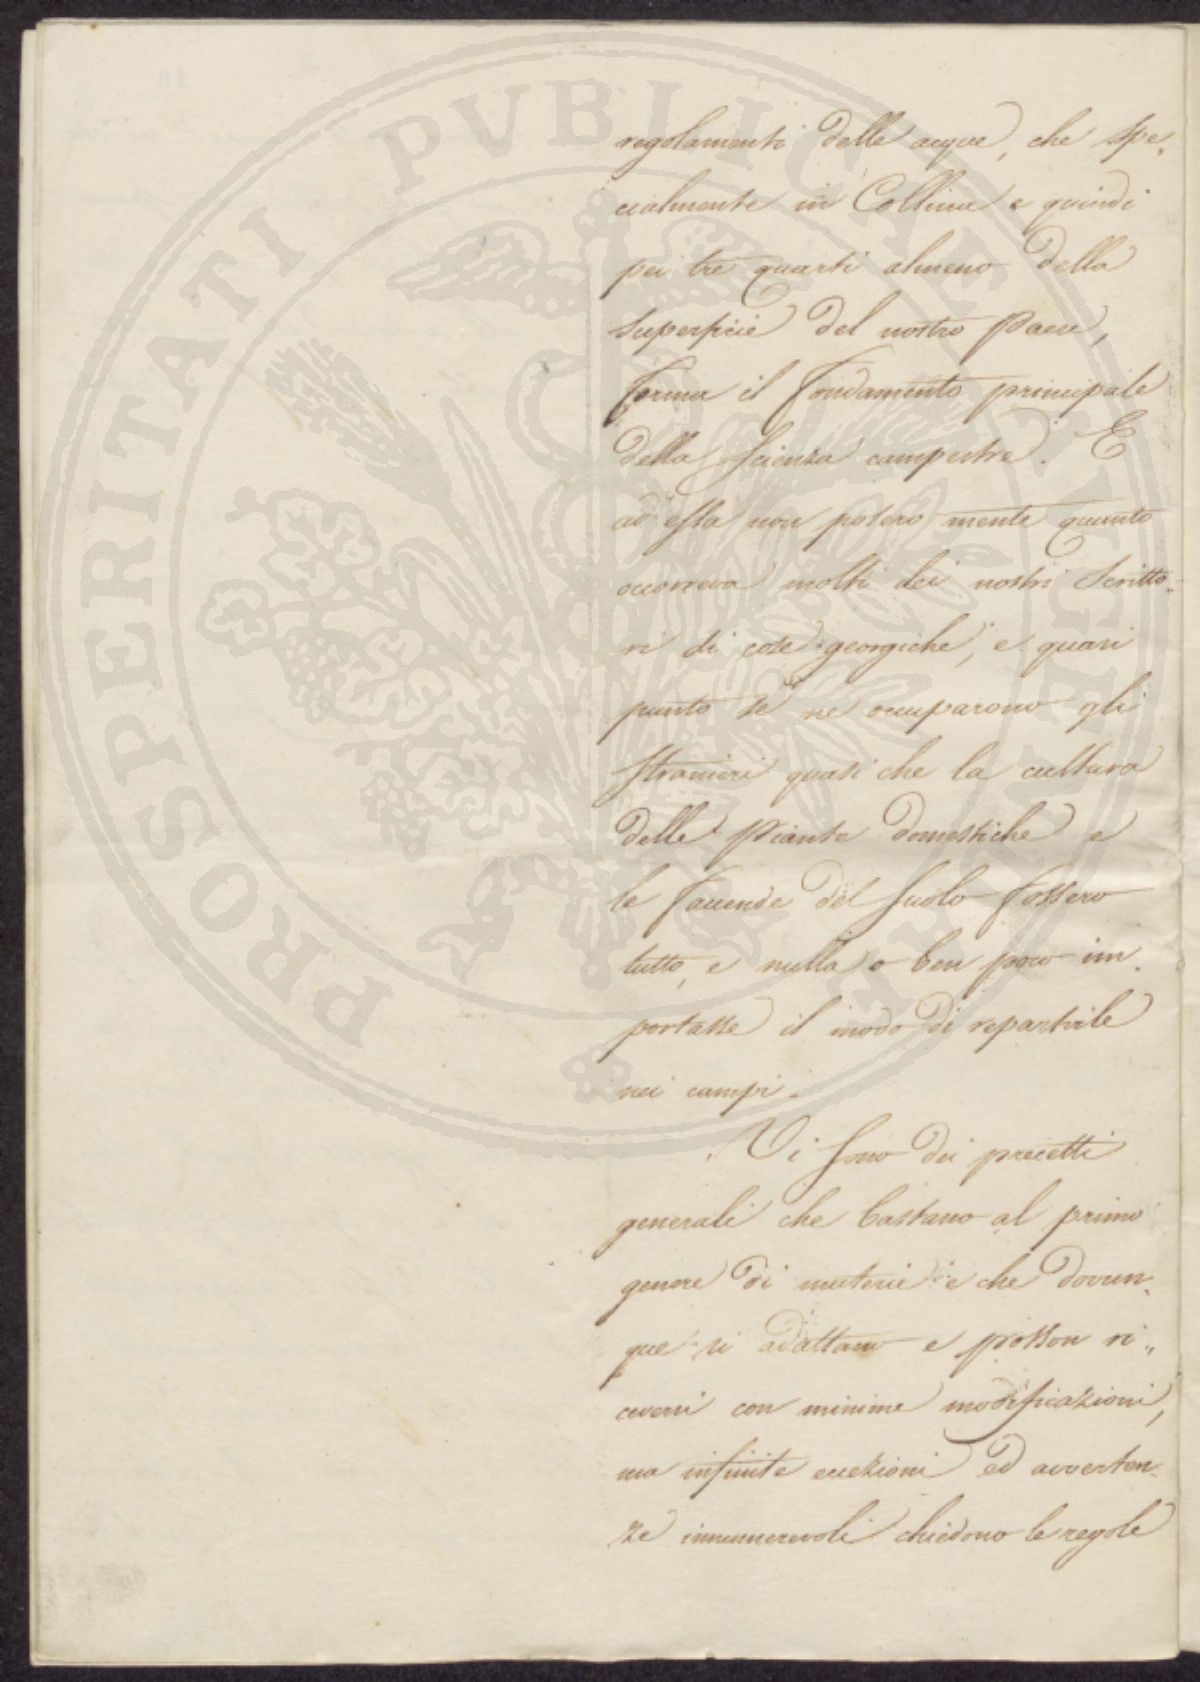 regolamenti delle acque, che spe-
cialmente in Collina e quindi
pei tre quarti almeno della
superficie del nostro Paese,
forma il fondamento principale
della Scienza campestre. E
ad essa non posero mente quanto
occorreva molti dei nostri Scritto-
ri di cose georgiche, e quasi
punto se ne occuparono gli
stranieri quasi che la cultura
delle Piante domestiche e
le faccende del suolo fossero
tutto, e nulla o ben poco im-
portasse il modo di repartirle
nei campi.
Vi sono dei precetti
generali che bastano al primo
genere di materie e che dovun-
que si adattano e posson ri-
ceversi con minime modificazioni,
ma infinite eccezioni ed avverten-
ze innumerevoli chiedono le regole
PROSPERITATI PVBLICAE